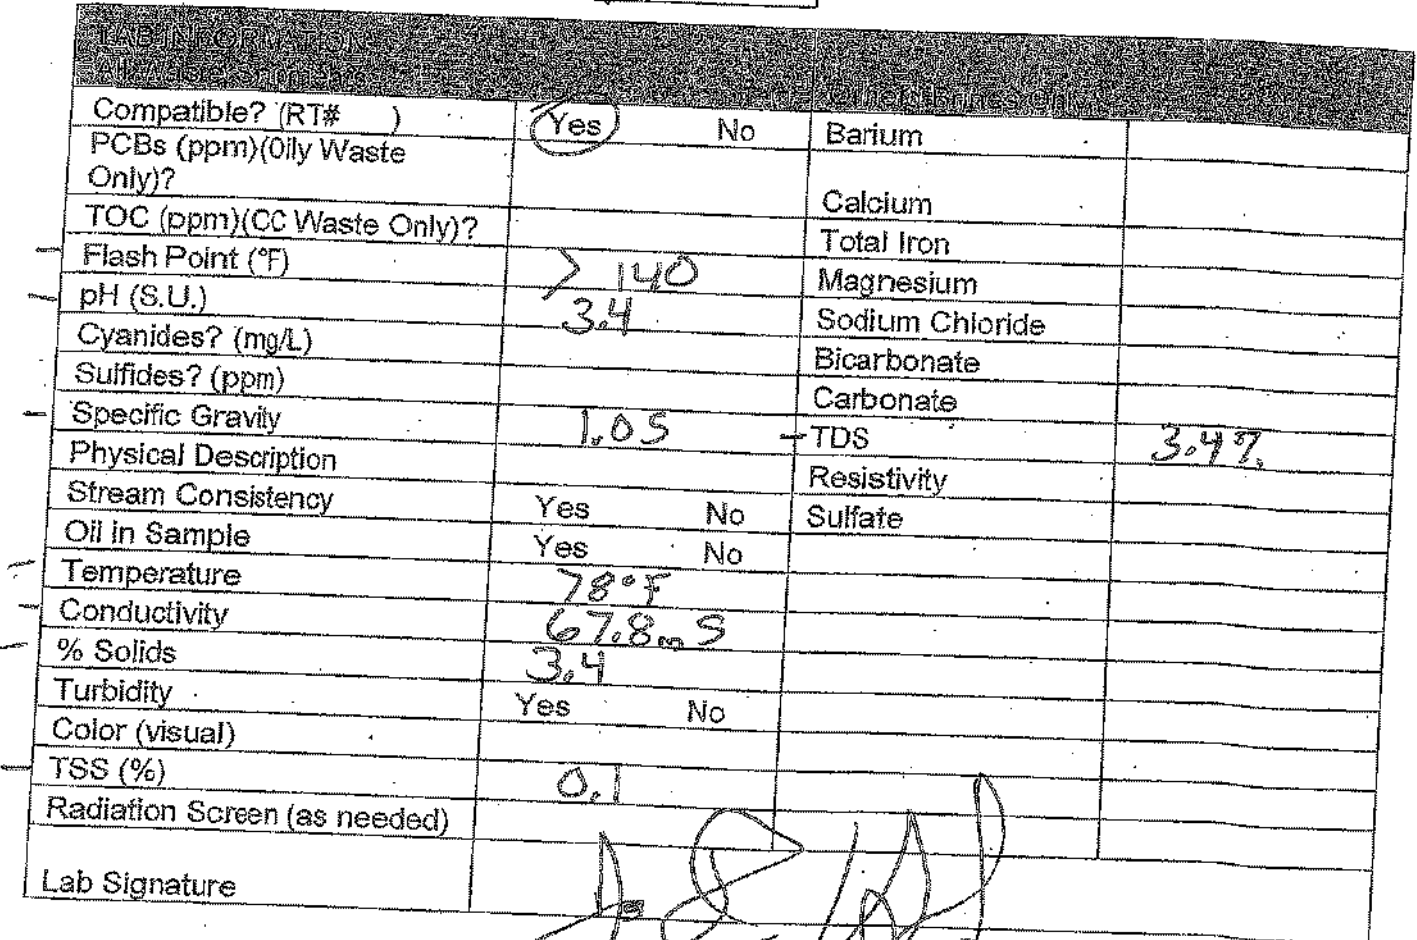 LAB INFORMATION
All Waste Shipments
Oilfield Brines Only
Compatible? (RT# ) Yes No Barium
PCBs (ppm)(Oily Waste
Only)? Calcium
TOC (ppm)(CC Waste Only)? Total Iron
Flash Point (°F) > 140 Magnesium
pH (S.U.) 3.4 Sodium Chloride
Cyanides? (mg/L) Bicarbonate
Sulfides? (ppm) Carbonate
Specific Gravity 1.05 TDS 3.4%
Physical Description Resistivity
Stream Consistency Yes No Sulfate
Oil in Sample Yes No
Temperature 78°F
Conductivity 67.8mS
% Solids 3.4
Turbidity Yes No
Color (visual)
TSS (%) 0.1
Radiation Screen (as needed)
Lab Signature